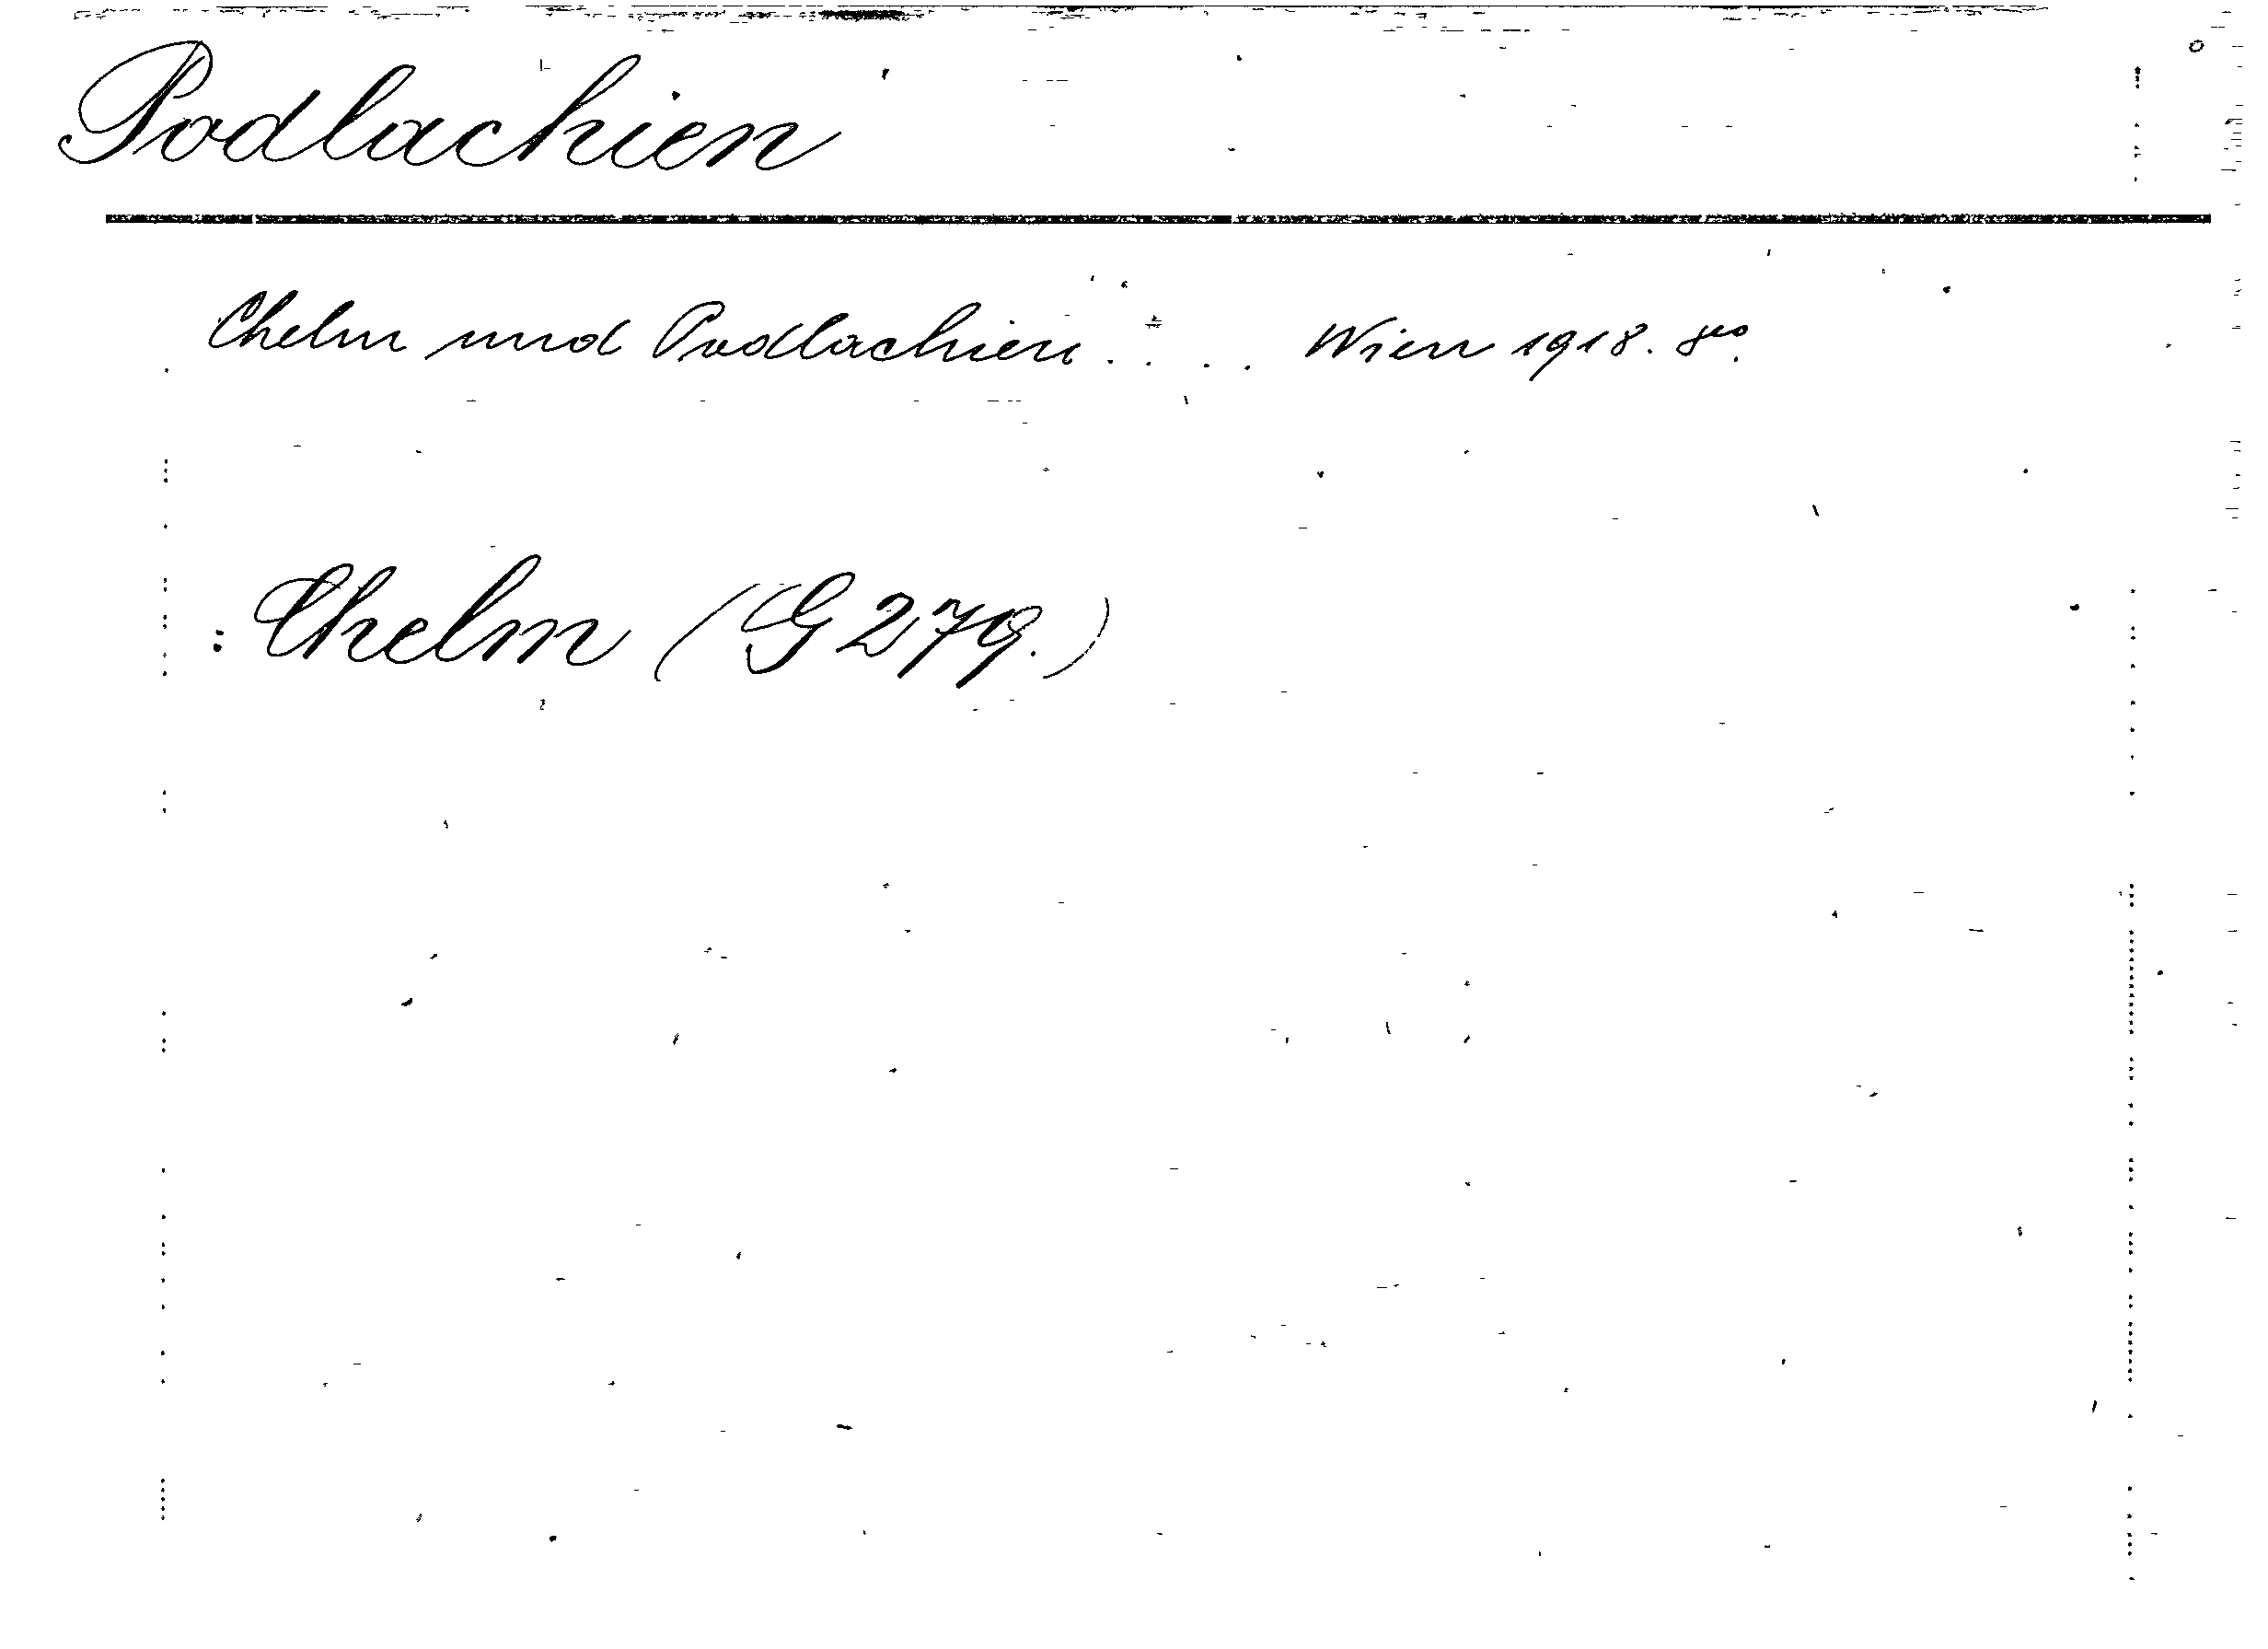 Podlachien
Chelm und Podlachien . . . . Wien 1918. 8vo.
: Chelm (G 279.)